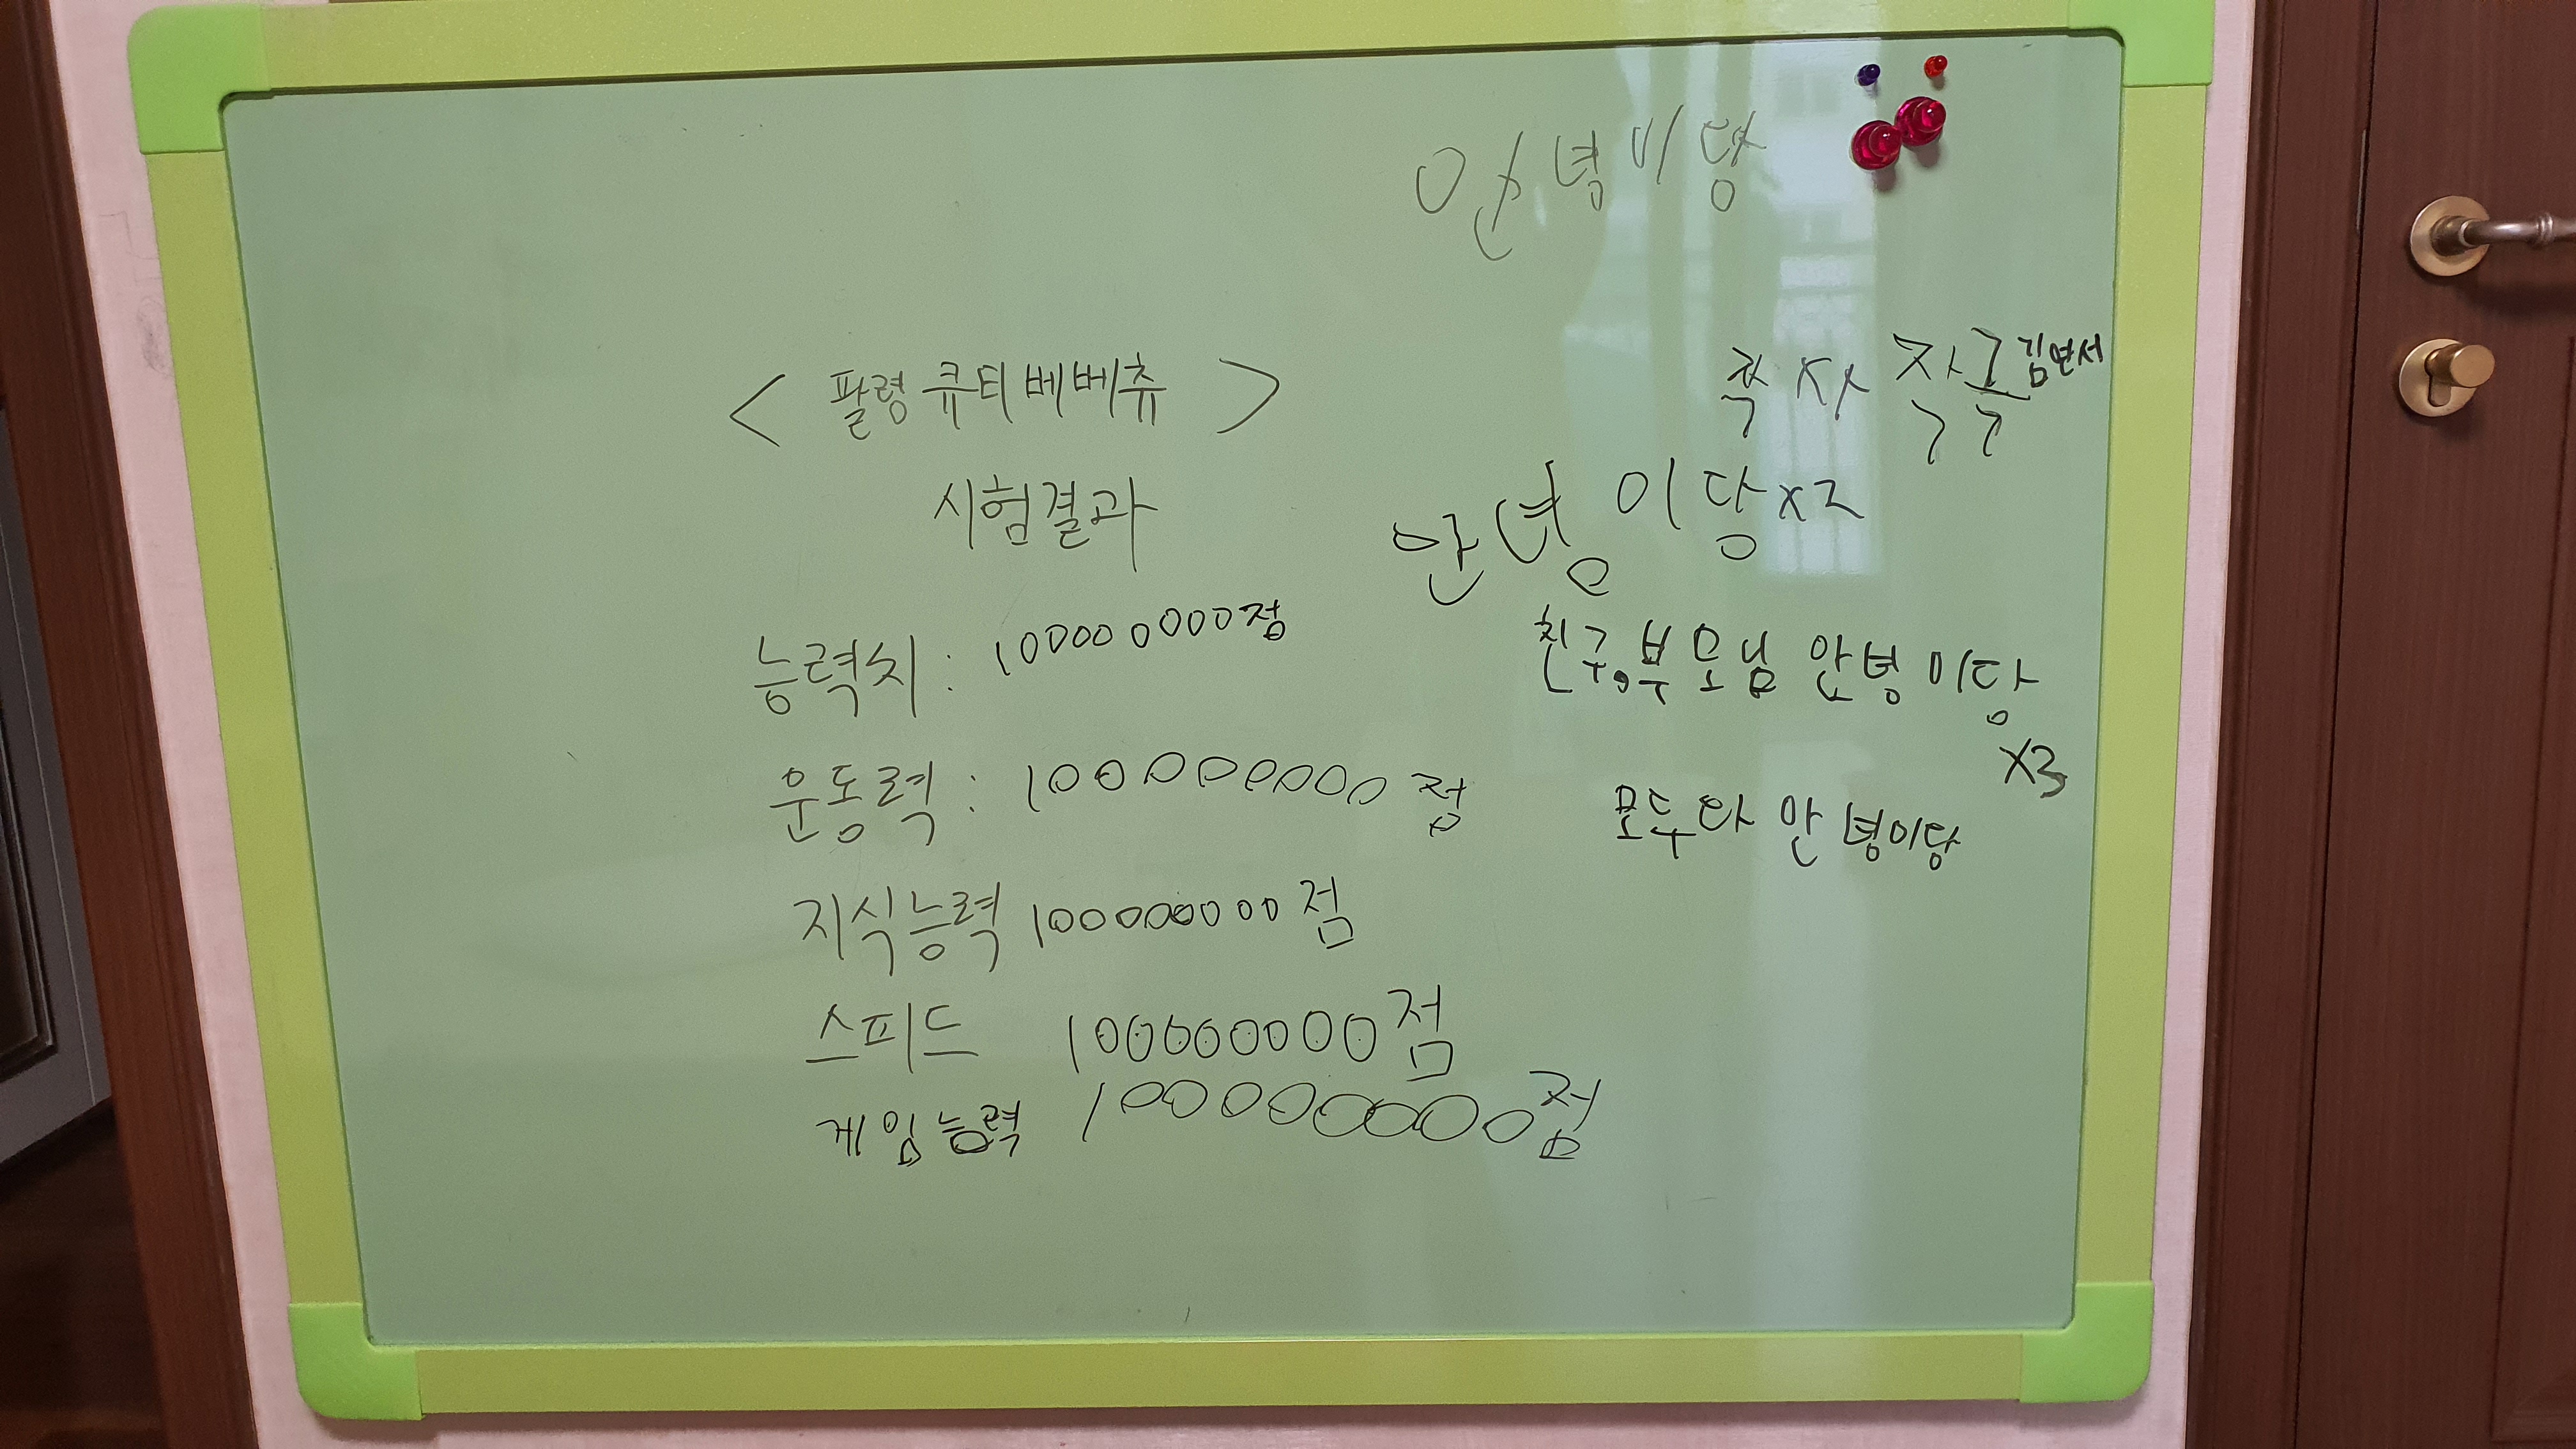 안녕이당
<팔령 큐티베베츄>
시험결과
능력치 : 100000000점
운동력 : 100000000점
지식능력 100000000점
스피드 100000000점
게임능력 100000000점
김연서
안녕이당x2
친구,부모님 안녕이당
X3
모두다 안녕이당